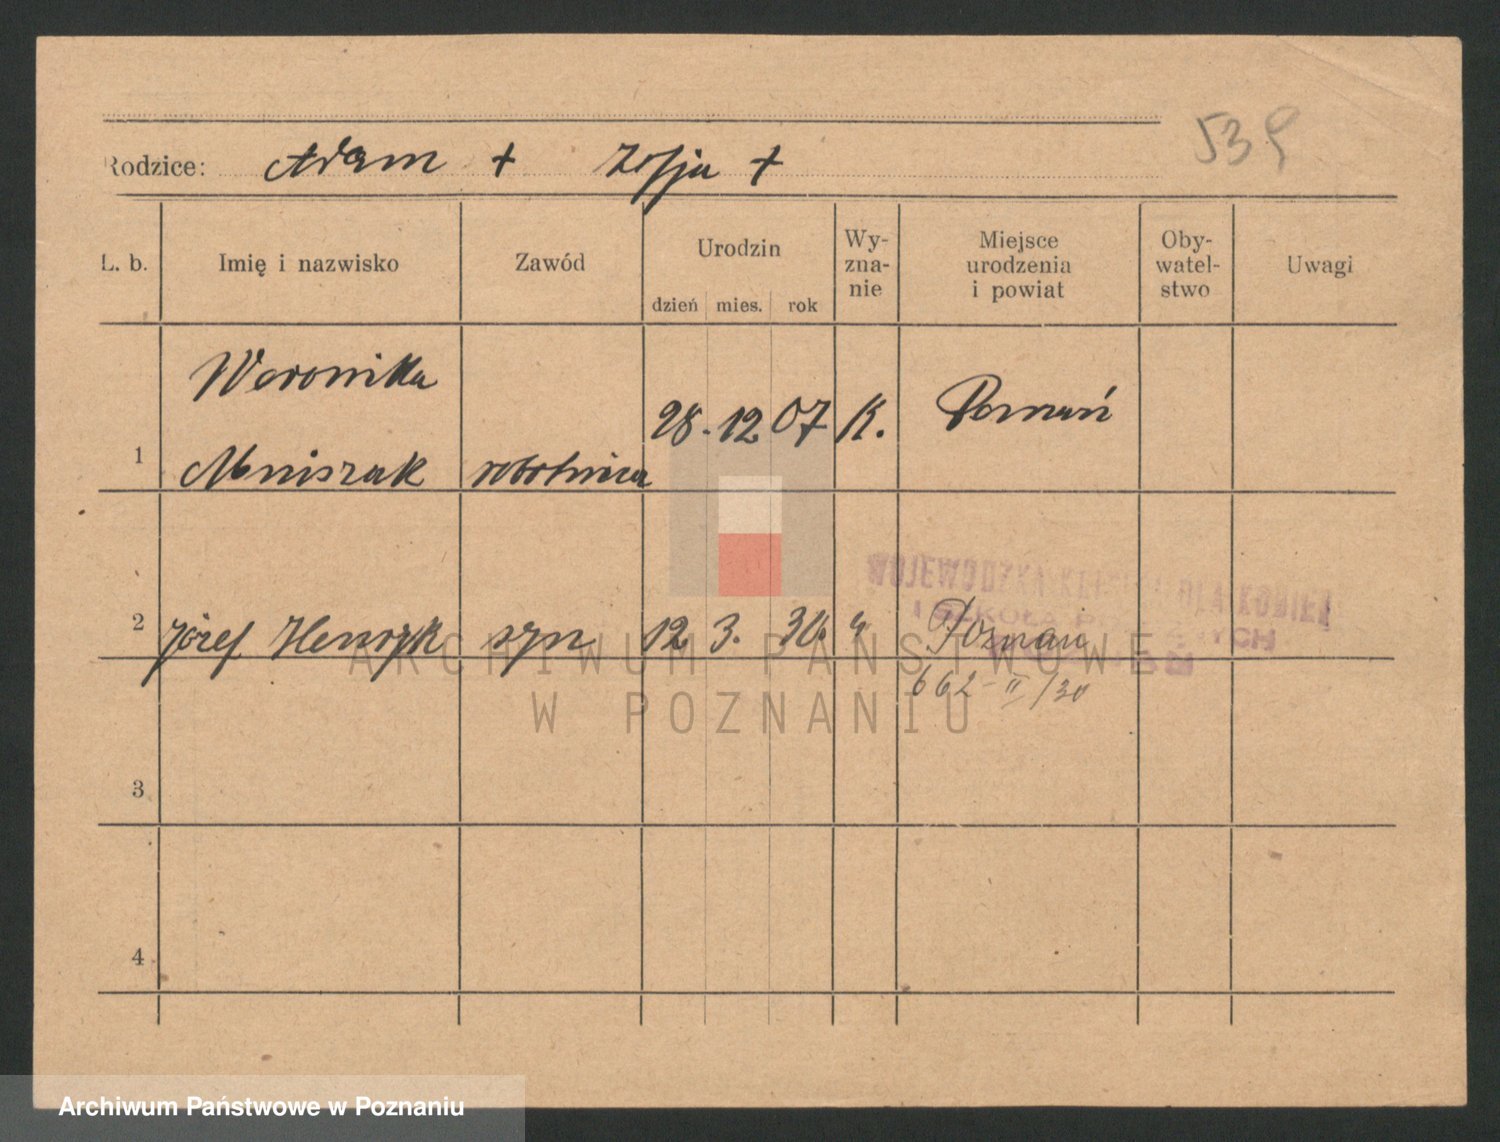 539
Rodzice: Adam + Zofja +
L. b. Imię i nazwisko Zawód Urodzin dzień mies. rok Wy-zna-nie Miejsce urodzenia i powiat Oby-watel-stwo Uwagi
Weronika
1 Mniszak robotnica 28. 12 07 K. Poznań
WOJEWÓDZKA DLA KOBIET
I SZKOŁA
2 Józef Henryk syn 12 3. 30. Poznań
662-II/30
3
4
ARCHIWUM PAŃSTWOWE
W POZNANIU
Archiwum Państwowe w Poznaniu